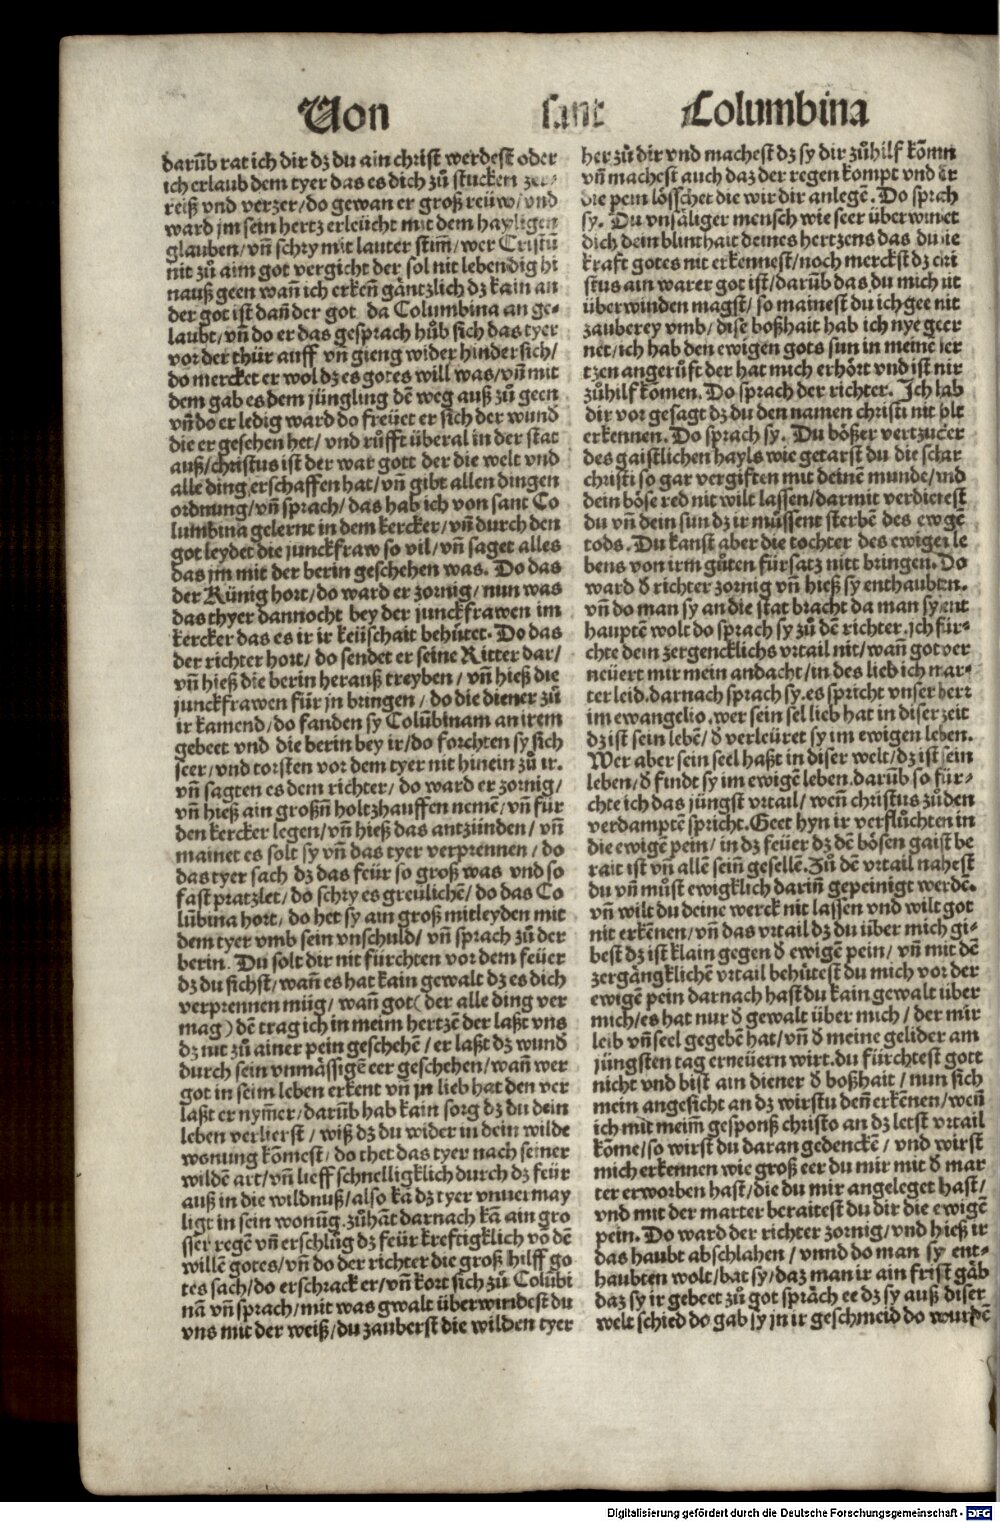 Von sant Columbina
darūb rat ich dir dz du ain christ werdest oder
ich erlaub dem tyer das es dich zů stucken zer-
reiß vnd verzer/do gewan er groß reüw/vnd
ward jm sein hertz erleücht mit dem hayligen
glauben/vn̄ schry mit lauter stim̄/wer Cristū
nit zů aim got vergicht der sol nit lebendig hi
nauß geen wan̄ ich erken̄ gäntzlich dz kain an
der got ist dan̄ der got da Columbina an ge-
laubt/vn̄ do er das gesprach hůb sich das tyer
vor der thür auff vn̄ gieng wider hinder sich/
do mercket er wol dz es gotes will was/vn̄ mit
dem gab es dem jüngling dē weg auß zů geen
vn̄ do er ledig ward do freüet er sich der wund
die er gesehen het/vnd růfft überal in der stat
auß/christus ist der war gott der die welt vnd
alle ding erschaffen hat/vn̄ gibt allen dingen
ordnung/vn̄ sprach/das hab ich von sant Co
lumbina gelernt in dem kercker/vn̄ durch den
got leydet die junckfraw so vil/vn̄ saget alles
das jm mit der berin geschehen was. Do das
der Künig hort/do ward er zornig/nun was
das thyer dannocht bey der junckfrawen im
kercker das es ir ir keüschait behütet. Do das
der richter hort/do sendet er seine Ritter dar/
vn̄ hieß die berin herauß treyben/vn̄ hieß die
junckfrawen für jn bringen/do die diener zů
ir kamend/do fanden sy Colūbinam an irem
gebeet vnd die berin bey ir/do forchten sy sich
seer/vnd torsten vor dem tyer nit hinein zů ir.
vn̄ sagten es dem richter/do ward er zornig/
vn̄ hieß ain großn̄ holtzhauffen nemē/vn̄ für
den kercker legen/vn̄ hieß das antzünden/vn̄
mainet es solt sy vn̄ das tyer verprennen/do
das tyer sach dz das feür so groß was vnd so
fast pratzlet/do schry es greülichē/do das Co
lūbina hort/do het sy ain groß mitleyden mit
dem tyer vmb sein vnschuld/vn̄ sprach zů der
berin. Du solt dir nit fürchten vor dem feüer
dz du sichst/wan̄ es hat kain gewalt dz es dich
verprennen müg/wan̄ got(der alle ding ver
mag) dē trag ich in meim hertzē der laßt vns
dz nit zů ainer pein geschehē/er laßt dz wund
durch sein vnmässigē eer geschehen/wan̄ wer
got in seim leben erkent vn̄ jn lieb hat den ver
laßt er nym̄er/darūb hab kain sorg dz du dein
leben verlierst/wiß dz du wider in dein wilde
wonung kōmest/do thet das tyer nach seiner
wildē art/vn̄ lieff schnelligklich durch dz feür
auß in die wildnuß/also kā dz tyer vnuermay
ligt in sein wonūg.zůhāt darnach kā ain gro
sser regē vn̄ erschlůg dz feür kreftigklich vō dē
willē gotes/vn̄ do der richter die groß hilff go
tes sach/do erschrack er/vn̄ kort sich zů Colūbi
nā vn̄ sprach/mit was gwalt überwindest du
vns mit der weiß/du zauberst die wilden tyer
her zů dir vnd machest dz sy dir zůhilf kōmn
vn̄ machest auch daz der regen kompt vnd dir
die pein lösschet die wir dir anlegē. Do sprach
sy. Du vnsäliger mensch wie seer überwinet
dich dein blinthait deines hertzens das du die
kraft gotes nit erkennest/noch merckst dz cri
stus ain warer got ist/darūb das du mich nit
überwinden magst/so mainest du ich gee nit
zauberey vmb/dise boßhait hab ich nye geer
net/ich hab den ewigen gots sun in meinē her
tzen angerüft der hat mich erhört vnd ist mir
zůhilf komen. Do sprach der richter. Ich hab
dir vor gesagt dz du den namen christi nit solt
erkennen. Do sprach sy. Du bößer vertzucker
des gaistlichen hayls wie getarst du die schar
christi so gar vergiften mit deinē munde/vnd
dein böse red nit wilt lassen/darmit verdienest
du vn̄ dein sun dz ir müssent sterbē des ewigē
tods. Du kanst aber die tochter des ewigen le
bens von irm gůten fürsatz nitt bringen. Do
ward ď richter zornig vn̄ hieß sy enthaubten.
vn̄ do man sy an die stat bracht da man sy ent
hauptē wolt do sprach sy zů dē richter.ich für-
chte dein zergencklichs vrtail nit/wan̄ got ver
neüert mir mein andacht/in des lieb ich mar-
ter leid.darnach sprach sy.es spricht vnser herr
im ewangelio.wer sein sel lieb hat in diser zeit
dz ist sein lebē/ď verleüret sy im ewigen leben.
Wer aber sein seel haßt in diser welt/dz ist sein
leben/ď findt sy im ewigē leben.darūb so für-
chte ich das jüngst vrtail/wen̄ christus zů den
verdamptē spricht.Geet hyn ir verflůchten in
die ewigē pein/in dz feüer dz dē bösen gaist be
rait ist vn̄ allē sein̄ gesellē.Zů dē vrtail nahest
du vn̄ můst ewigklich darin̄ gepeinigt werdē.
vn̄ wilt du deine werck nit lassen vnd wilt got
nit erkēnen/vn̄ das vrtail dz du über mich gi-
best dz ist klain gegen ď ewigē pein/vn̄ mit dē
zergängklichē vrtail behütest du mich vor der
ewigē pein darnach hast du kain gewalt über
mich/es hat nur ď gewalt über mich/der mir
leib vn̄ seel gegebē hat/vn̄ ď meine gelider am
jüngsten tag erneüern wirt.du fürchtest gott
nicht vnd bist ain diener ď boßhait/nun sich
mein angesicht an dz wirstu den̄ erkēnen/wen̄
ich mit meim̄ gesponß christo an dz letst vrtail
kōme/so wirst du daran gedenckē/vnd wirst
mich erkennen wie groß eer du mir mit ď mar
ter erworben hast/die du mir angeleget hast/
vnd mit der marter beraitest du dir die ewigē
pein. Do ward der richter zornig/vnd hieß ir
das haubt abschlahen/vnnd do man sy ent-
haubten wolt/bat sy/daz man ir ain frist gäb
daz sy ir gebeet zů got spräch ee dz sy auß diser
welt schied do gab sy jn ir geschmeid do wurdē
Digitalisierung gefördert durch die Deutsche Forschungsgemeinschaft - DFG